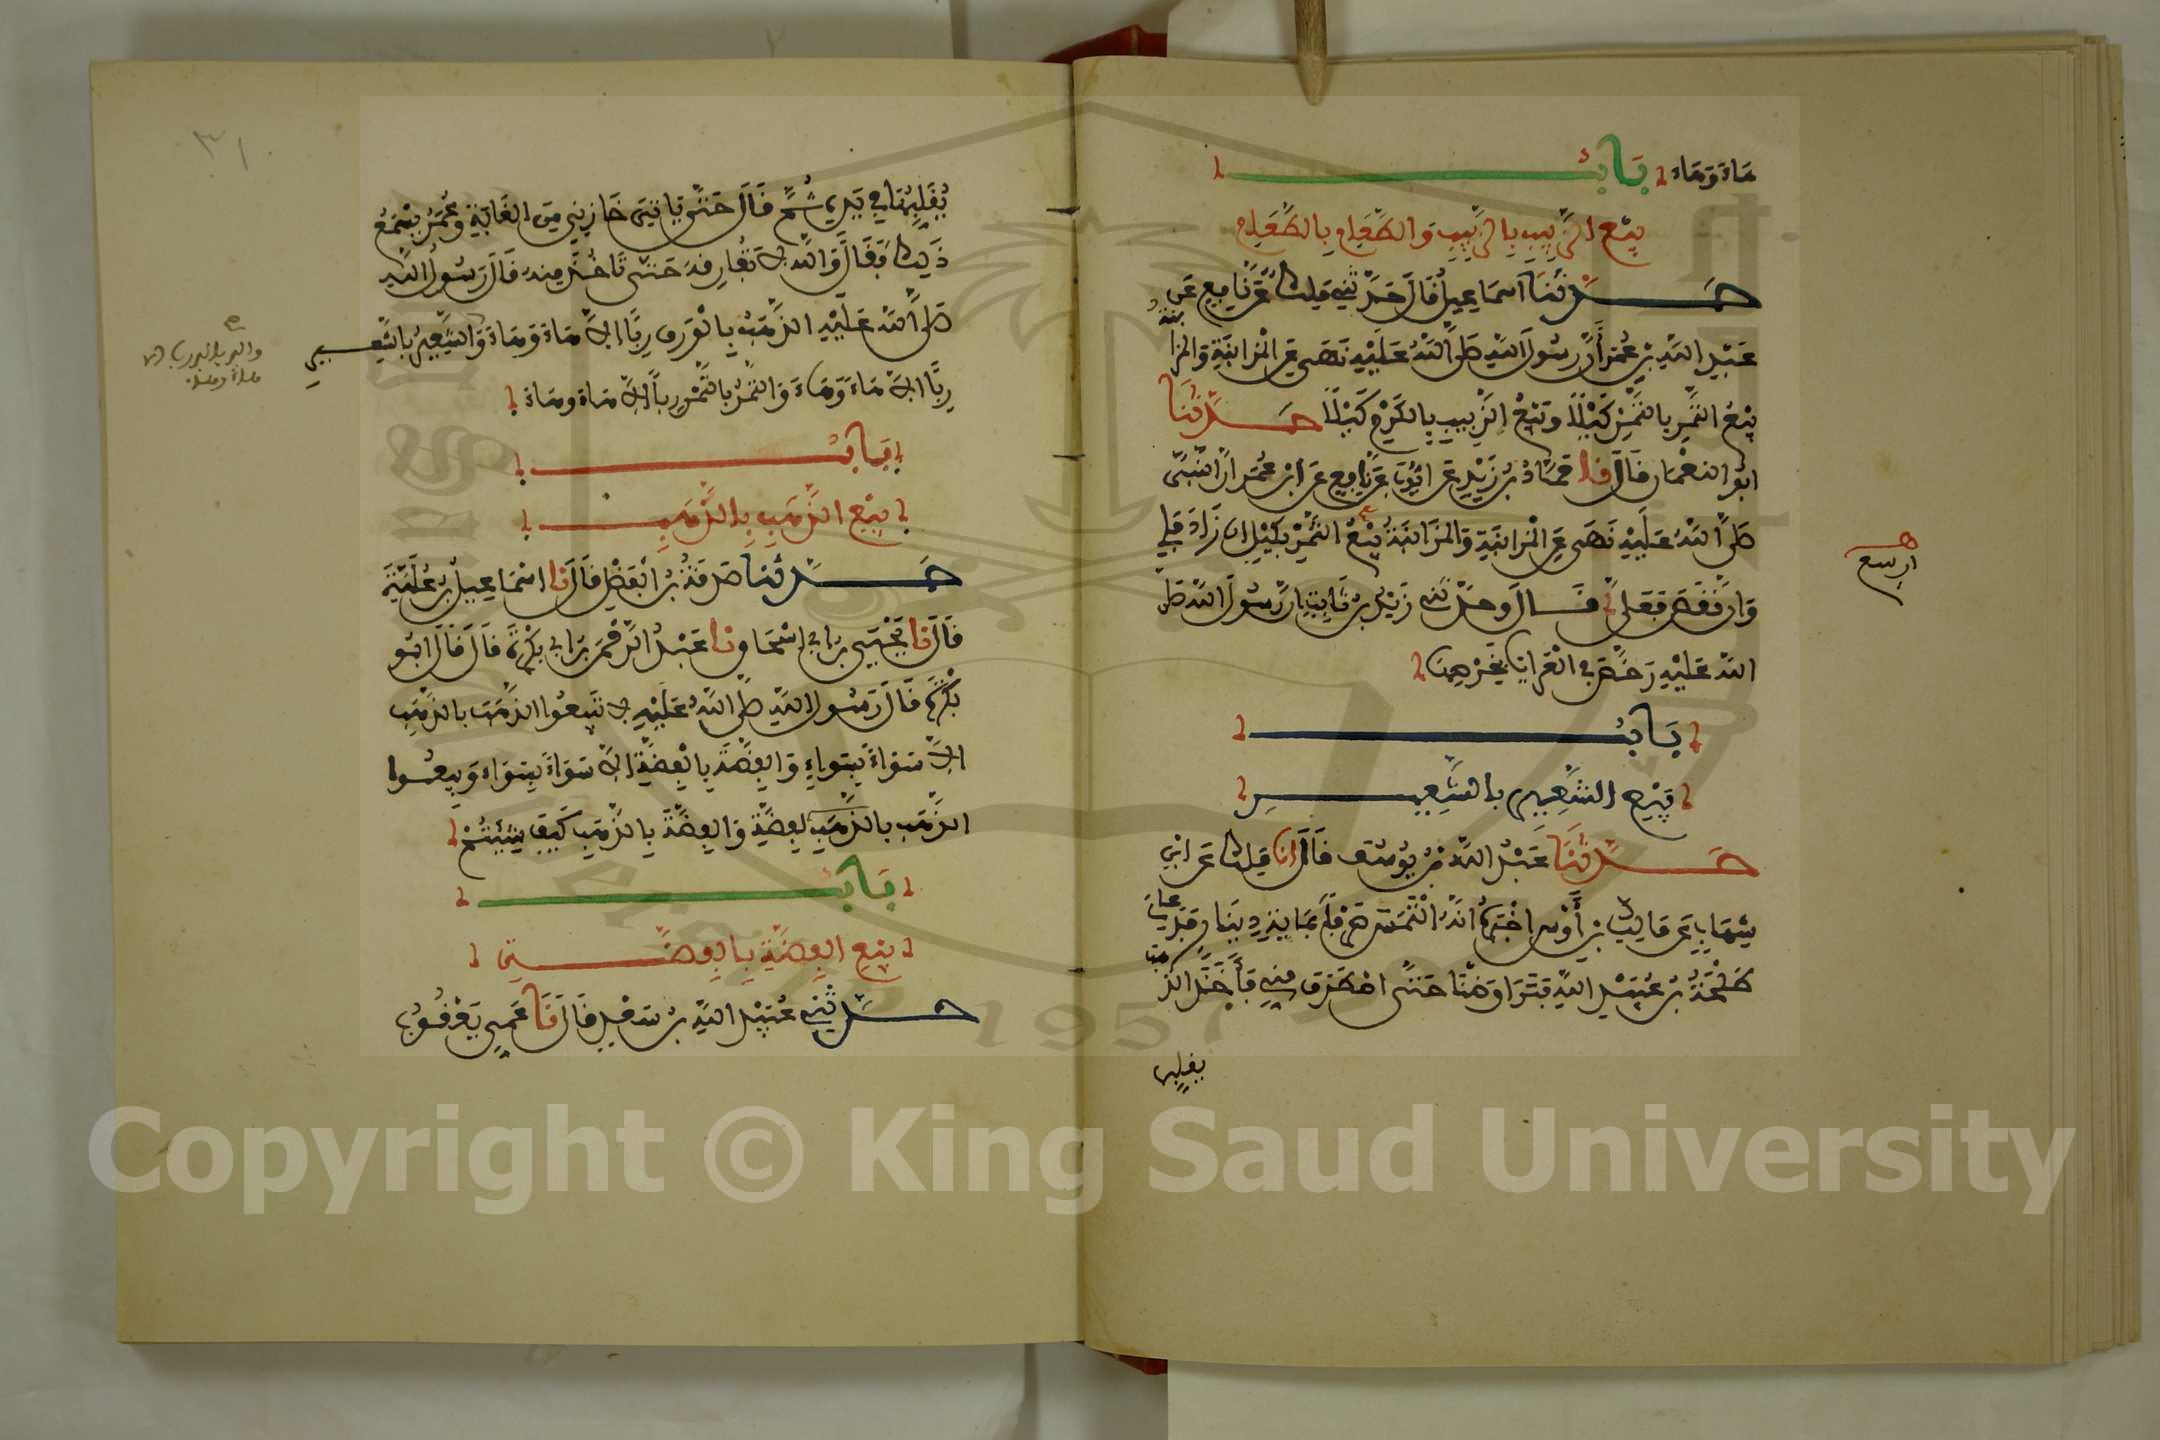 هَاءَ وَهَاءَ بَابُ
بَيْعِ الزَّبِيبِ بِالزَّبِيبِ وَالطَّعَامِ بِالطَّعَامِ
حَدَّثَنَا اسماعِيلُ قَالَ حَدَّثَنِي مَلِكٌ عَنْ نَافِعٍ عَن
عَبْدِ اللهِ بْنِ عُمَرَ أَنَّ رَسُولَ اللهِ صَلَّى اللهُ عَلَيْهِ نَهَى عَنِ الْمُزَابَنَةِ وَالمُزَا بَنَةُ
بَيْعُ الثَّمَرِ بالتَّمْرِ كَيْلًا وَبَيْعُ الزَّبِيبِ بِالكَرْمِ كَيْلًا حَدَّثَنَا
ابُو النعْمَانِ قَالَ نا حَمَّادُ بْنُ زَيْدٍ عَنْ ايُّوبَ عَنْ نَافِعٍ عَنِ ابْنِ عُمَرَ انَّ النَّبِىَّ
صَلَّى اللهُ عَلَيْهِ نَهَى عَنِ الْمُزَابَنَةِ وَالمُزَابَنَةُ بَيْعُ الثَّمَرِ بِكَيْلٍ ان زَادَ فَلِي
وَان نَقَصَ فَعَلَيَّ قَالَ وَحَدَّثَنِي زَيْدُ بْنُ ثَابِتٍ انَّ رَسُولَ اللهِ صَلَّى
اللهُ عَلَيْهِ رَخَّصَ فِي الْعَرَايَا بِخَرْصِهَا
بَابُ
بَيْعِ الشَّعِيرِ بالشَّعِيرِ
حَدَّثَنَا عَبْدُ اللهِ بْنُ يُوسُفَ قَالَ انا مَلِكٌ عَن ابْنِ
شِهَابٍ عَن مَالِكِ بْنِ أَوْسٍ اخْبَرَهُ انَّهُ الْتَمَسَ صَرْفًا بِمِائَةِ دِينَارٍ فَدَعَانِي
طَلْحَةُ بْنُ عُبَيْدِ اللهِ فَتَرَاوَضْنَا حَتَّى اصْطَرَفَ مِنِّي فَأَخَذَ الذَّهَبَ
يقلبها
ابن بيع
٣١
يُقَلِّبُهَا فِي يَدِهِ ثُمَّ قَالَ حَتَّى يَاتِيَ خَازِنِي مِنَ الغَابَةِ وَعُمَرُ يَسْمَعُ
ذَلِكَ فَقَالَ وَاللهِ لَا تُفَارِقُهُ حَتَّى تَاخُذَ مِنْهُ قَالَ رَسُولُ اللهِ
صَلَّى اللهُ عَلَيْهِ الذَّهَبُ بِالْوَرِقِ رِبًا الَّا هَاءَ وَهَاءَ وَالشَّعِيرُ بالشَّعِيرِ
رِبًا الَّا هَاءَ وَهَاءَ وَالتَّمْرُ بالتَّمْرِ رِباً الَّا هَاءَ وهَاءَ
والبر بالبر ربا الا
هاء وهاء
بَابُ
بَيْعِ الذَّهَبِ بِالذَّهَبِ
حَدَّثَنَا صَدَقَةُ بْنُ الْفَضْلِ قَالَ نا اسْمَاعِيلُ بْنُ عُلَيَّةَ
قَالَ نا يَحْيَى بْنُ ابِي إسْحَاقَ نا عَبْدُ الرَّحْمَنِ بْنُ ابِي بَكْرَةَ قَالَ قَالَ ابُو
بَكْرَةَ قَالَ رَسُولُ اللهِ صَلَّى اللهُ عَلَيْهِ لَا تَبِيعُوا الذَّهَبَ بالذَّهَبِ
الَّا سَوَاءً بِسَوَاءٍ وَالْفِضَّةَ بِالْفِضَّةِ الَّا سَوَاءً بِسَوَاءٍ وَبِيعُوا
الذَّهَبَ بالذَّهَبِ بِالفِضَّةِ وَالفِضَّةَ بِالذَّهَبِ كَيْفَ شِئْتُمْ
بَابُ
بَيْعِ الفِضَّةِ بِالفِضَّةِ
حَدَّثَنِي عُبَيْدُ اللهِ بْنُ سَعْدٍ قَالَ نَا عَمِّي يَعْقُوبُ
1957
Copyright © King Saud University